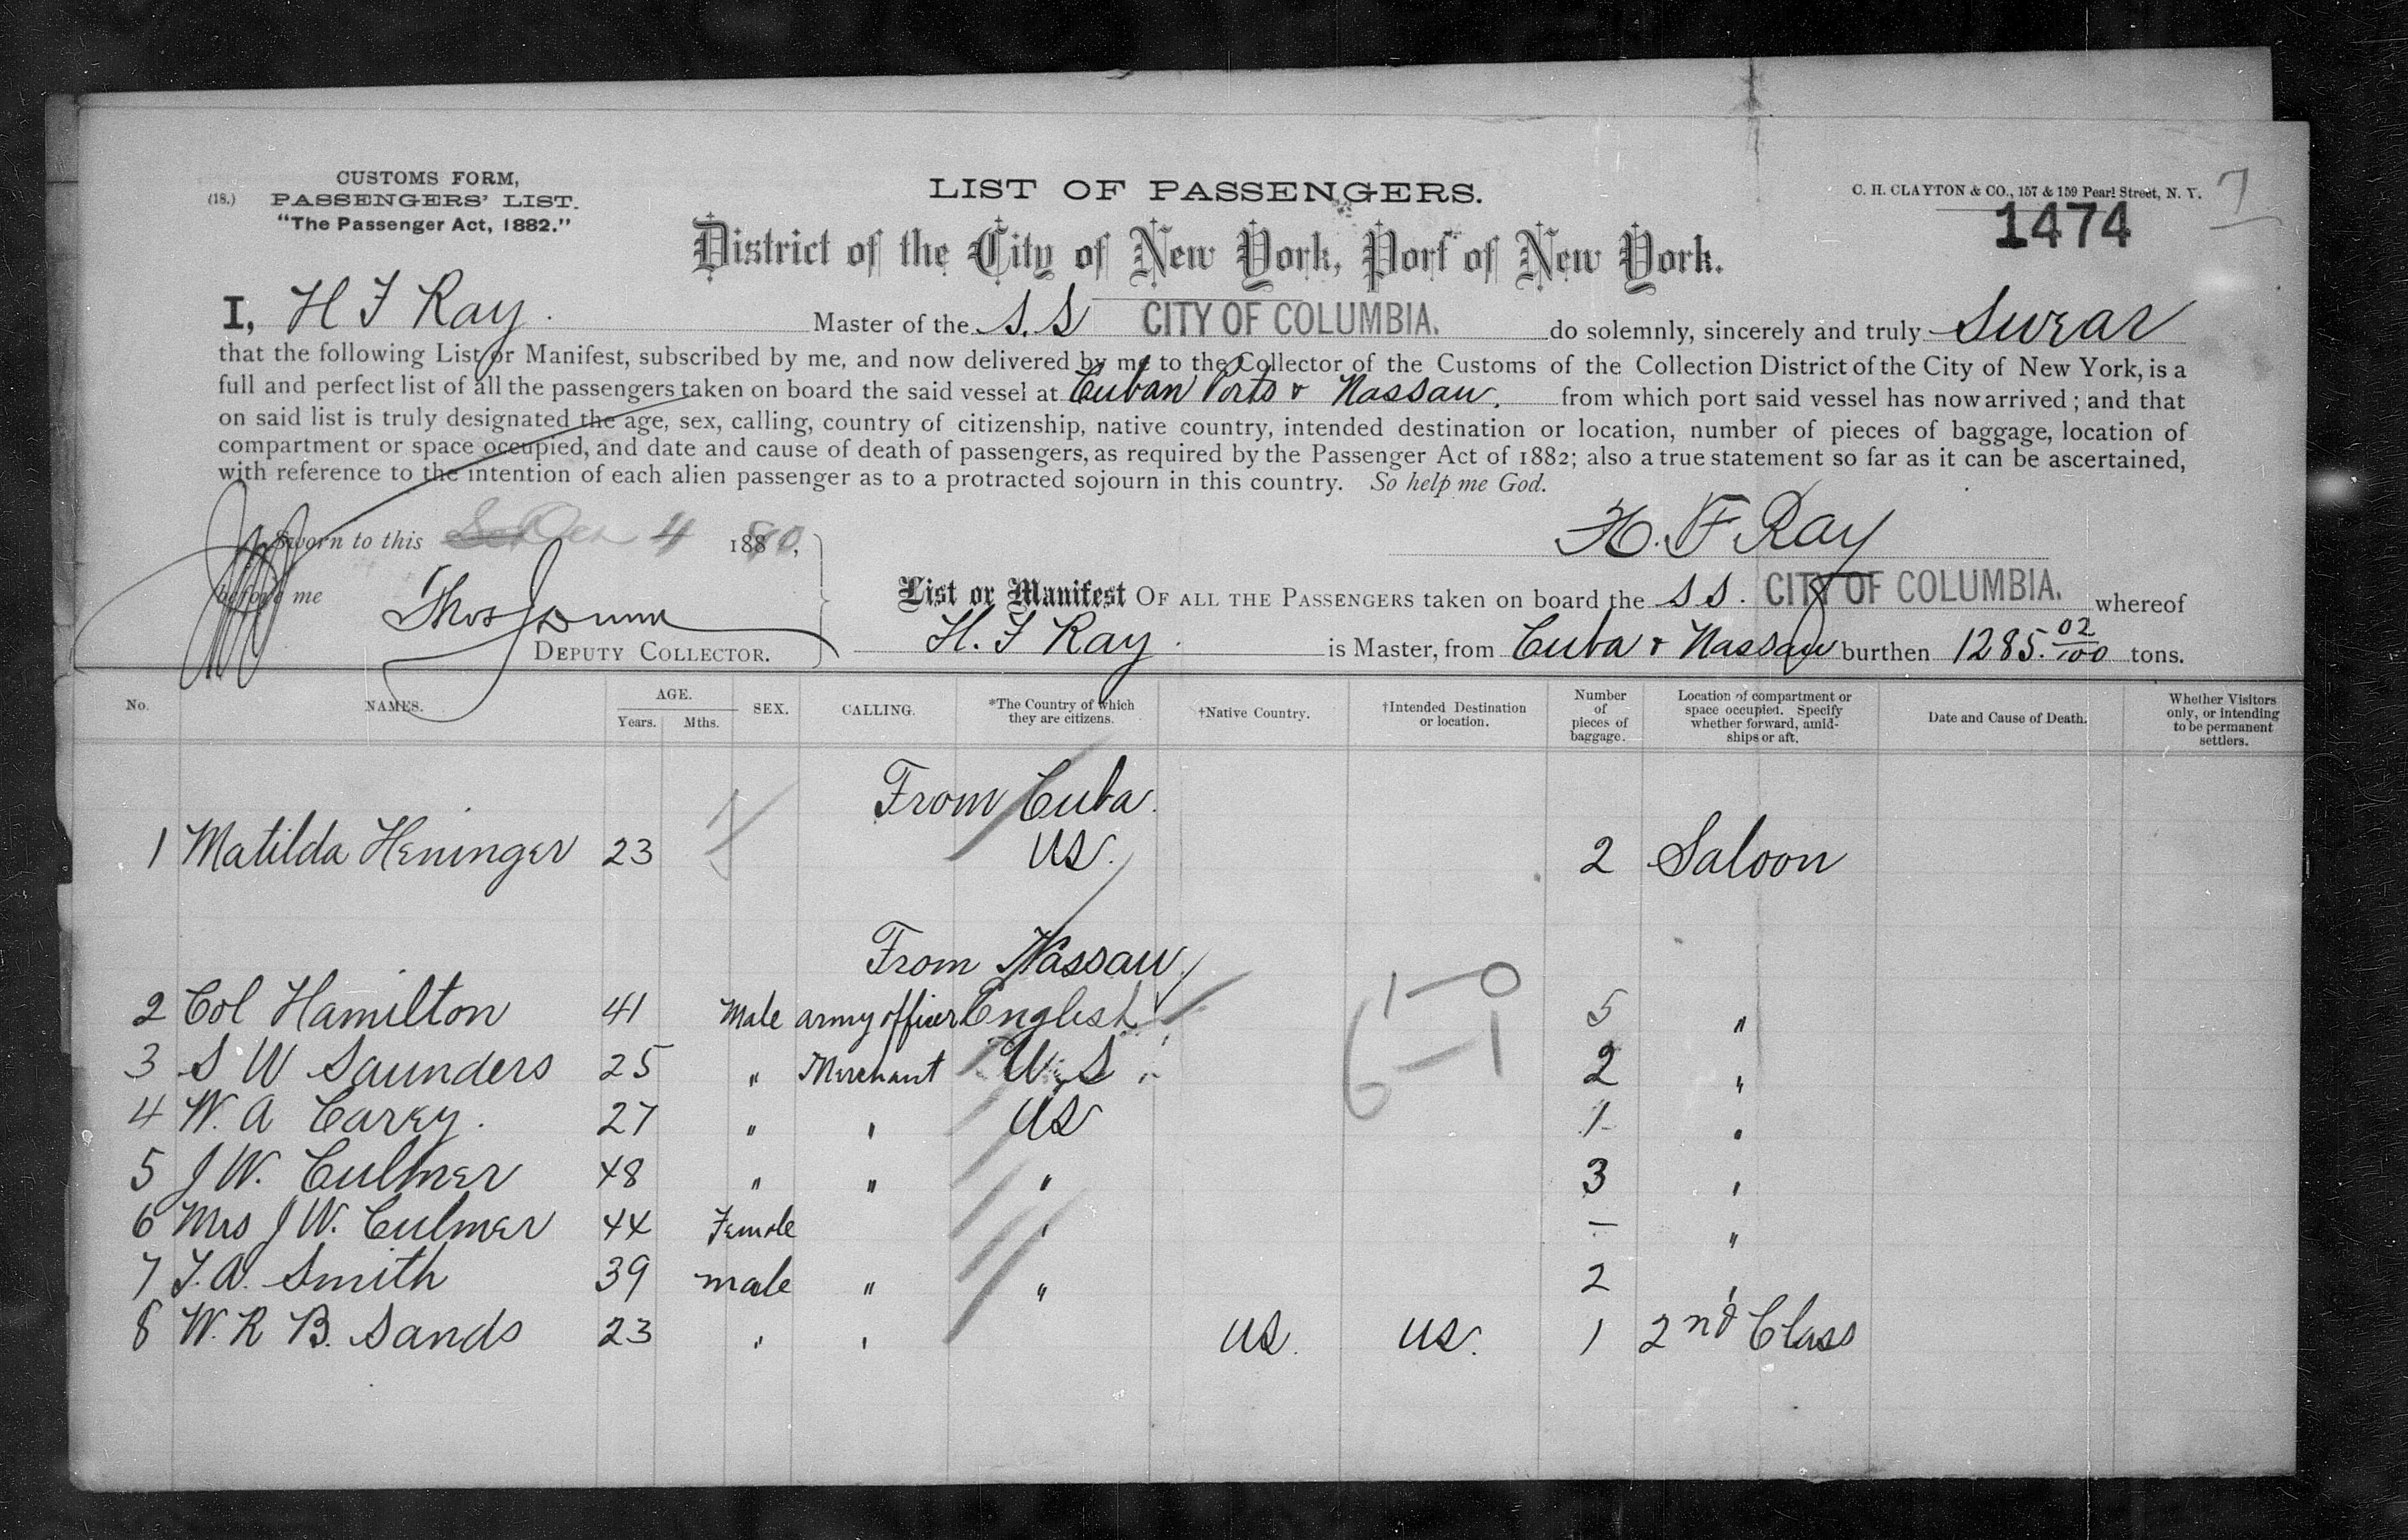 CUSTOMS FORM,
(18.) PASSENGERS' LIST.
"The Passenger Act, 1882."
LIST OF PASSENGERS.
C. H. CLAYTON & CO., 157 & 159 Pearl Street, N. Y. 7
1474
District of the City of New York, Port of New York.
I, H F Ray. Master of the S.S CITY OF COLUMBIA. do solemnly, sincerely and truly Swear
that the following List or Manifest, subscribed by me, and now delivered by me to the Collector of the Customs of the Collection District of the City of New York, is a
full and perfect list of all the passengers taken on board the said vessel at Cuban Ports & Nassau. from which port said vessel has now arrived; and that
on said list is truly designated the age, sex, calling, country of citizenship, native country, intended destination or location, number of pieces of baggage, location of
compartment or space occupied, and date and cause of death of passengers, as required by the Passenger Act of 1882; also a true statement so far as it can be ascertained,
with reference to the intention of each alien passenger as to a protracted sojourn in this country. So help me God.
H. F Ray
Sworn to this 4 188
before me Thos J Dunn
DEPUTY COLLECTOR.
List or Manifest OF ALL THE PASSENGERS taken on board the S S. CITY OF COLUMBIA. whereof
H. F Ray. is Master, from Cuba & Nassau burthen 1285. 02/100 tons.
No. NAMES. AGE. Years. Mths. SEX. CALLING. *The Country of which they are citizens. †Native Country. †Intended Destination or location. Number of pieces of baggage. Location of compartment or space occupied. Specify whether forward, amidships or aft. Date and Cause of Death. Whether Visitors only, or intending to be permanent settlers.
From Cuba.
1 Matilda Heninger 23 US. 2 Saloon
From Nassau
1-0
2 Col Hamilton 41 Male army officer English 5 "
6-1
3 S W Saunders 25 " Merchant U.S 2 "
4 W. A Carey. 27 " " US 1 "
5 J W. Culmer 48 " " " 3 "
6 Mrs J W. Culmer 44 Female " - "
7 T. A. Smith 39 male " " 2 "
8 W. R B. Sands 23 " " US. US. 1 2nd Class